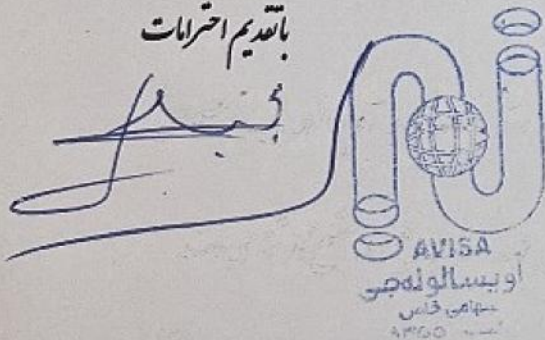 با تقدیم احترامات
AVISA
آویسا لوله جی
سهامی خاص